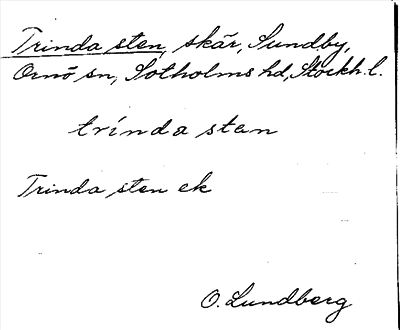 Trinda sten, skär, Sundby,
Ornö sn, Sotholms hd, Stockh. l.
trínda sten
Trinda sten ek
O. Lundberg